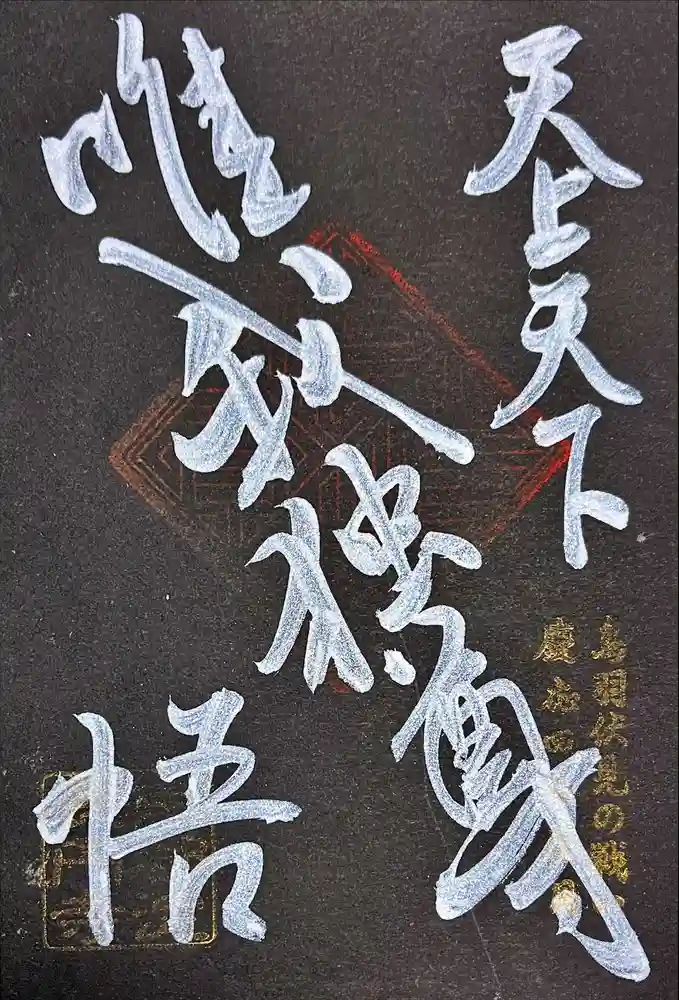 天上天下
唯我独尊
鳥羽伏見の戦
慶応四
悟